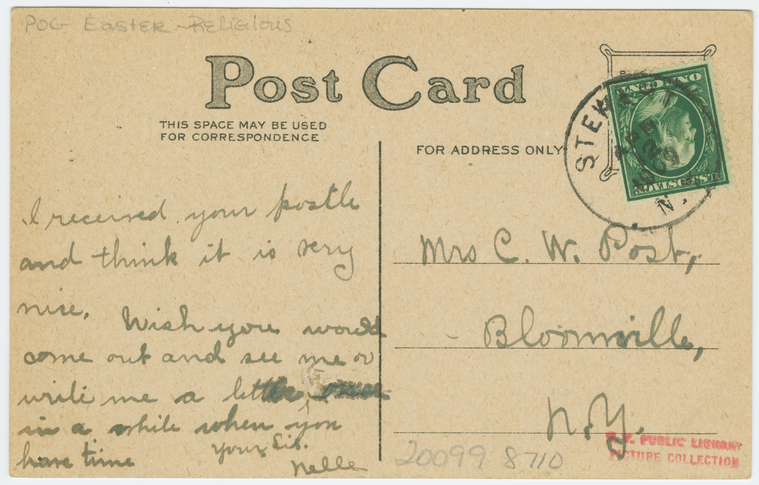 POC Easter - Religious
Post Card
THIS SPACE MAY BE USED
FOR CORRESPONDENCE
FOR ADDRESS ONLY
I received your postle
and think it is very
nise. Wish you would
come out and see me or
write me a letter
in a while when you
have time
Your Sis.
Nelle
STEK
APR
1909
N.
U.S. POSTAGE
ONE CENT
Mrs C. W. Post,
Bloomville,
N.Y.
20099 8710
N.Y. PUBLIC LIBRARY
PICTURE COLLECTION